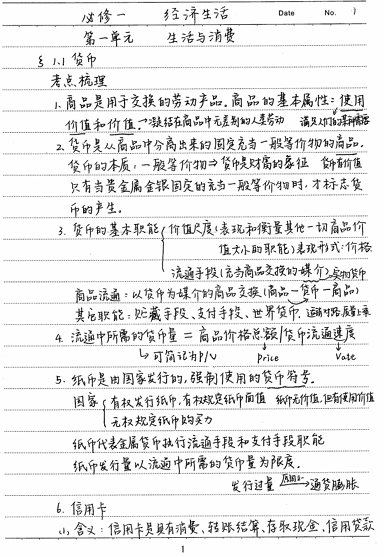 必修一 经济生活 Date No. 1
第一单元 生活与消费
§ 1.1 货币
考点梳理
1. 商品是用于交换的劳动产品. 商品的基本属性: 使用
价值和价值. →凝结在商品中无差别的人类劳动 满足人们的某种需要
2. 货币是从商品中分离出来的固定充当一般等价物的商品.
货币的本质: 一般等价物⇒货币是财富的象征 货币有价值
只有当贵金属金银固定的充当一般等价物时, 才标志货
币的产生。
3. 货币的基本职能 价值尺度(表现和衡量其他一切商品价
值大小的职能)表现形式: 价格
流通手段(充当商品交换的媒介)→实物货币
商品流通: 以货币为媒介的商品交换 (商品—货币—商品)
其它职能: 贮藏手段、支付手段、世界货币.
4. 流通中所需的货币量 = 商品价格总额/货币流通速度
↳ 可简记为P/V Price Vate
5. 纸币是由国家发行的, 强制使用的货币符号.
国家 有权发行纸币, 有权规定纸币面值 纸币无价值, 但有使用价值
无权规定纸币购买力
纸币代表金属货币执行流通手段和支付手段职能
纸币发行量以流通中所需的货币量为限度。
发行过量 → 通货膨胀
6. 信用卡
(1) 含义: 信用卡是具有消费、转账结算、存取现金、信用贷款
1